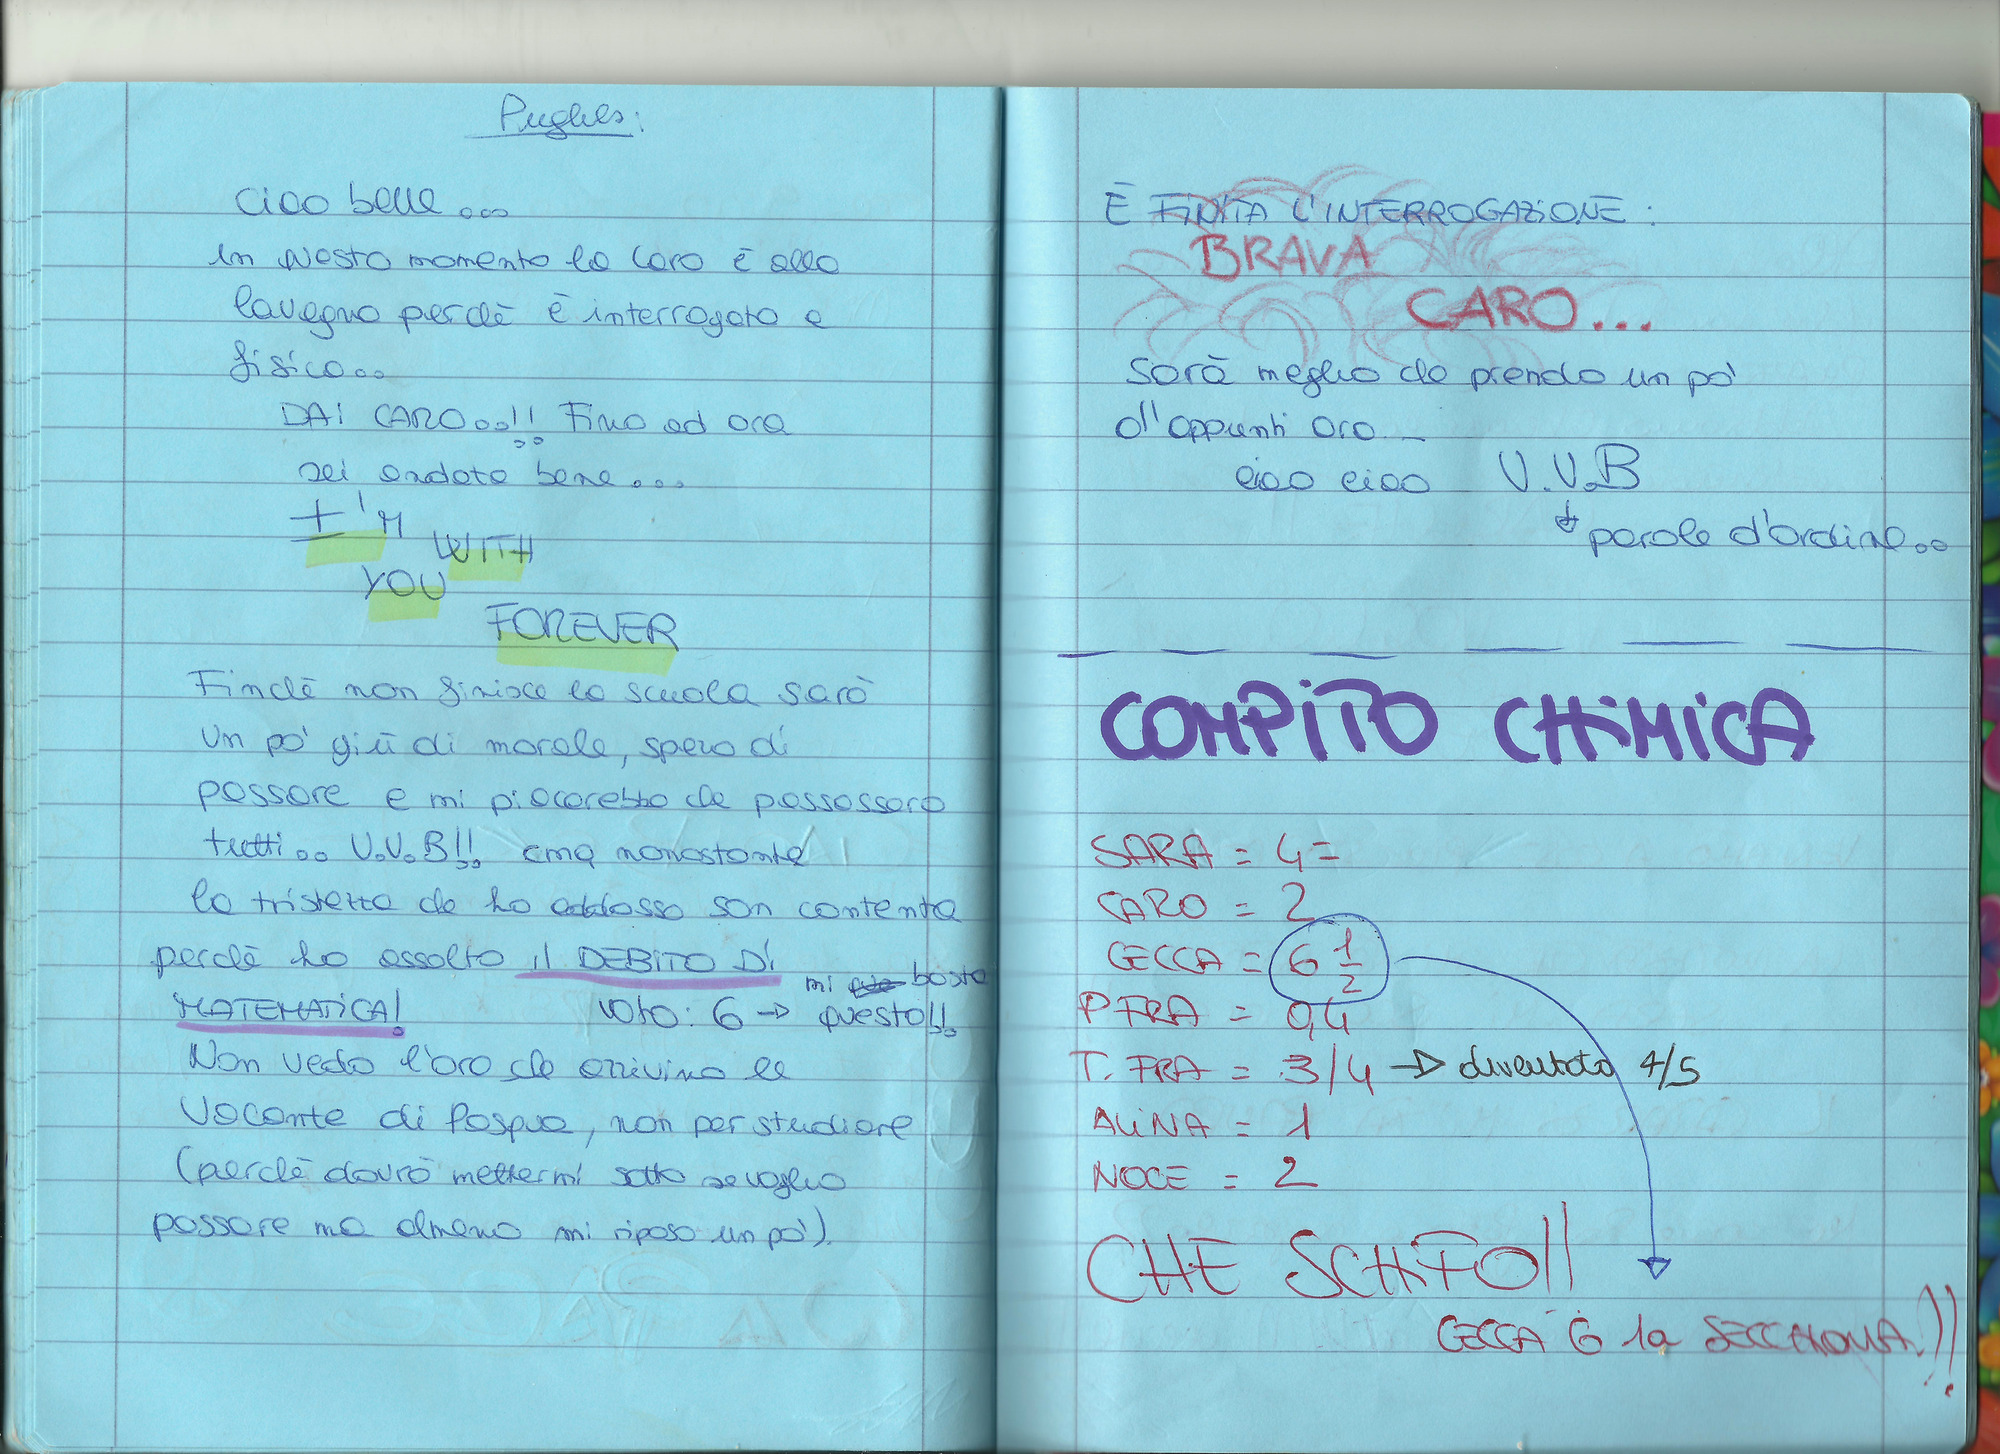 Pughes:
Ciao belle...
In questo momento la Caro è alla
lavagna perchè è interrogata a
fisica...
DAI CARO...!! Fino ad ora
sei andata bene...
I'M
WITH
YOU
FOREVER
Finchè non finisce la scuola sarò
un po' giù di morale, spero di
passare e mi piacerebbe che passassero
tutti... V.V.B!! cmq nonostante
la tristezza che ho addosso son contenta
perchè ho assolto il DEBITO DI
MATEMATICA! voto: 6 → mi basta questo!!
Non vedo l'ora che arrivino le
vacanze di Pasqua, non per studiare
(perchè dovrò mettermi sotto se voglio
passare ma almeno mi riposo un po').
È FINITA L'INTERROGAZIONE:
BRAVA
CARO...
Sarà meglio che prendo un po'
d'appunti ora...
ciao ciao V.V.B
↓ parole d'ordine..
COMPITO CHIMICA
SARA = 4=
CARO = 2
CECCA = 6 1/2
P FRA = 0,4
T. FRA = 3/4 → diventato 4/5
ALINA = 1
NOCE = 2
CHE SCHIFO!!
CECCA 6 la SECCHIONA!!